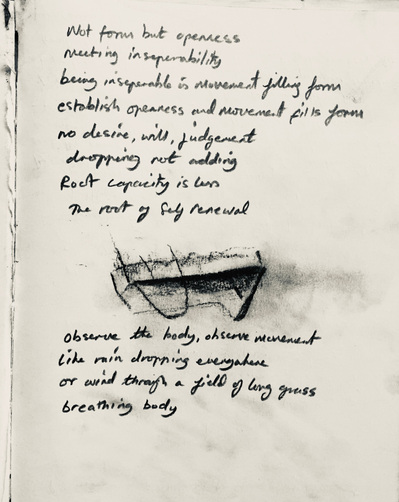 Not form but openness
meeting inseperability
being inseperable is movement filling form
establish openness and movement fills form
no desire, will, judgement
dropping not adding
Root capacity is less
The root of Self renewal
observe the body, observe movement
like rain dropping everywhere
or wind through a field of long grass
breathing body